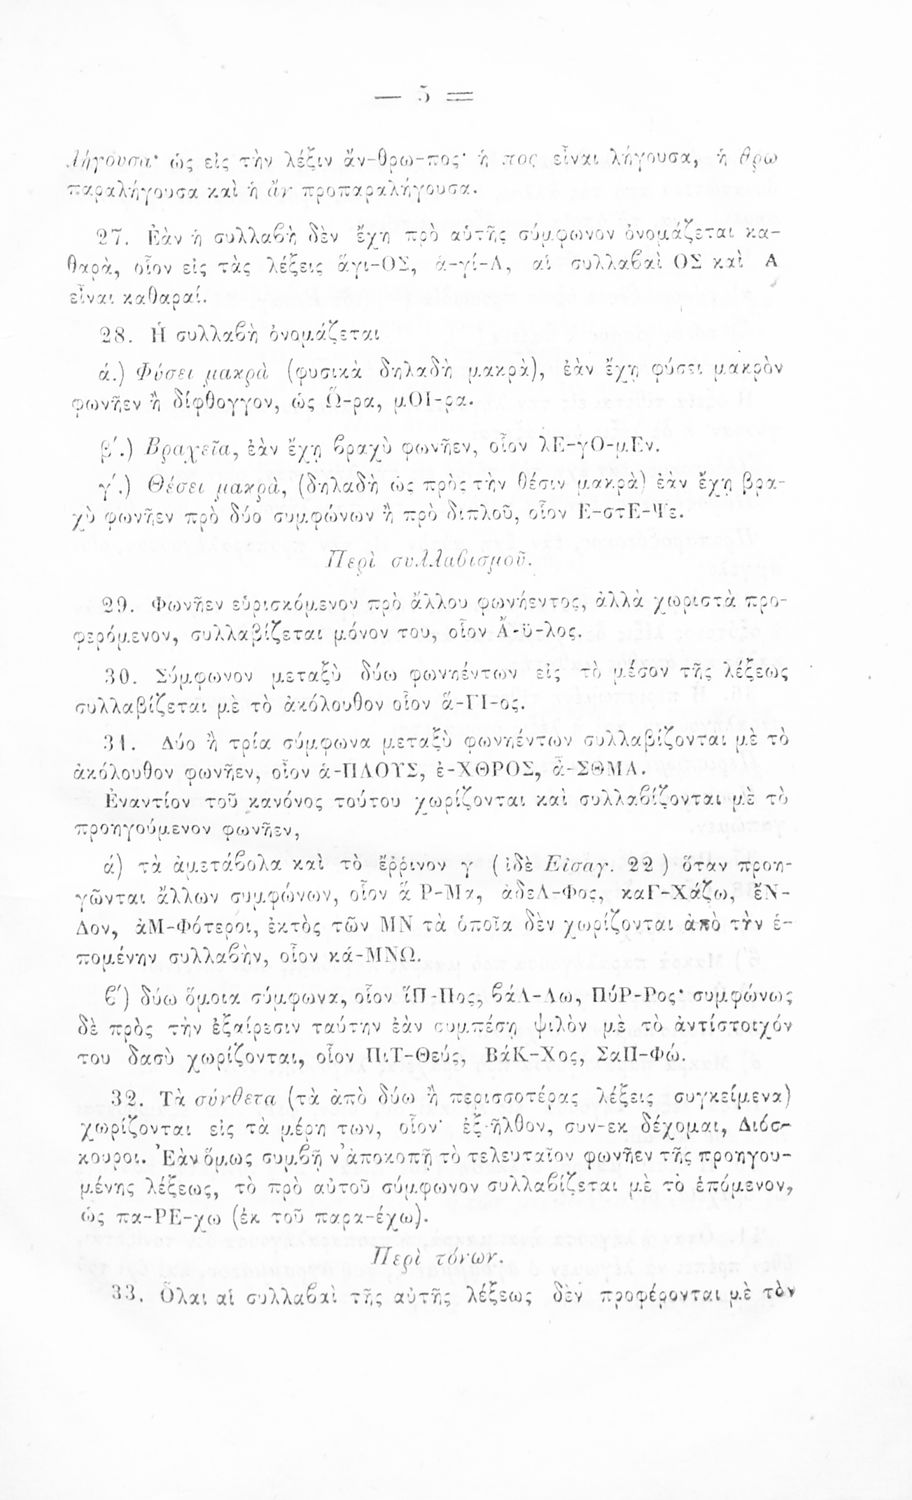 — 5 =
λήγουσα· ὡς εἰς τὴν λέξιν ἄν-θρω-πος· ἡ πος εἶναι λήγουσα, ἡ θρω
παραλήγουσα καὶ ἡ ἄν προπαραλήγουσα.
27. Ἐὰν ἡ συλλαβὴ δὲν ἔχῃ πρὸ αὑτῆς σύμφωνον ὀνομάζεται κα-
θαρὰ, οἷον εἰς τὰς λέξεις ἅγι-ΟΣ, ἁ-γί-Α, αἱ συλλαβαὶ ΟΣ καὶ Α
εἶναι καθαραί.
28. Ἡ συλλαβὴ ὀνομάζεται
ά.) Φύσει μακρὰ (φυσικὰ δηλαδὴ μακρὰ), ἐὰν ἔχῃ φύσει μακρὸν
φωνῆεν ἢ δίφθογγον, ὡς Ὥ-ρα, μΟΙ-ρα.
β΄.) Βραχεῖα, ἐὰν ἔχῃ βραχὺ φωνῆεν, οἷον λΕ-γΟ-μΕν.
γ΄.) Θέσει μακρὰ, (δηλαδὴ ὡς πρὸς τὴν θέσιν μακρὰ) ἐὰν ἔχῃ βρα-
χὺ φωνῆεν πρὸ δύο συμφώνων ἢ πρὸ διπλοῦ, οἷον Ε-στΕ-Ψε.
Περὶ συλλαβισμοῦ.
29. Φωνῆεν εὑρισκόμενον πρὸ ἄλλου φωνήεντος, ἀλλὰ χωριστὰ προ-
φερόμενον, συλλαβίζεται μόνον του, οἷον Ἄ-ϋ-λος.
30. Σύμφωνον μεταξὺ δύω φωνηέντων εἰς τὸ μέσον τῆς λέξεως
συλλαβίζεται μὲ τὸ ἀκόλουθον οἷον ἅ-ΓΙ-ος.
31. Δύο ἢ τρία σύμφωνα μεταξὺ φωνηέντων συλλαβίζονται μὲ τὸ
ἀκόλουθον φωνῆεν, οἷον ἁ-ΠΛΟΥΣ, ἐ-ΧΘΡΟΣ, ἆ-ΣΘΜΑ.
Ἐναντίον τοῦ κανόνος τούτου χωρίζονται καὶ συλλαβίζονται μὲ τὸ
προηγούμενον φωνῆεν,
ά) τὰ ἀμετάβολα καὶ τὸ ἔῤῥινον γ (ἰδὲ Εἰσαγ. 22) ὅταν προη-
γῶνται ἄλλων συμφώνων, οἷον ἅ Ρ-Μα, ἀδεΛ-Φος, καΓ-Χάζω, ἔΝ-
Δον, ἀΜ-Φότεροι, ἐκτὸς τῶν ΜΝ τὰ ὁποῖα δὲν χωρίζονται ἀπὸ τὴν ἑ-
πομένην συλλαβὴν, οἷον κά-ΜΝΩ.
β΄) δύω ὅμοια σύμφωνα, οἷον ἵΠ-Πος, βάΛ-Λω, ΠύΡ-Ρος· συμφώνως
δὲ πρὸς τὴν ἐξαίρεσιν ταύτην ἐὰν συμπέσῃ ψιλὸν μὲ τὸ ἀντίστοιχόν
του δασὺ χωρίζονται, οἷον ΠιΤ-Θεύς, ΒάΚ-Χος, ΣαΠ-Φώ.
32. Τὰ σύνθετα (τὰ ἀπὸ δύω ἢ περισσοτέρας λέξεις συγκείμενα)
χωρίζονται εἰς τὰ μέρη των, οἷον· ἐξ-ῆλθον, συν-εκ δέχομαι, Διόσ-
κουροι. Ἐὰν ὅμως συμβῇ ν᾿ ἀποκοπῇ τὸ τελευταῖον φωνῆεν τῆς προηγου-
μένης λέξεως, τὸ πρὸ αὐτοῦ σύμφωνον συλλαβίζεται μὲ τὸ ἑπόμενον,
ὡς πα-ΡΕ-χω (ἐκ τοῦ παρα-έχω).
Περὶ τόνων.
33. Ὅλαι αἱ συλλαβαὶ τῆς αὐτῆς λέξεως δὲν προφέρονται μὲ τὸν